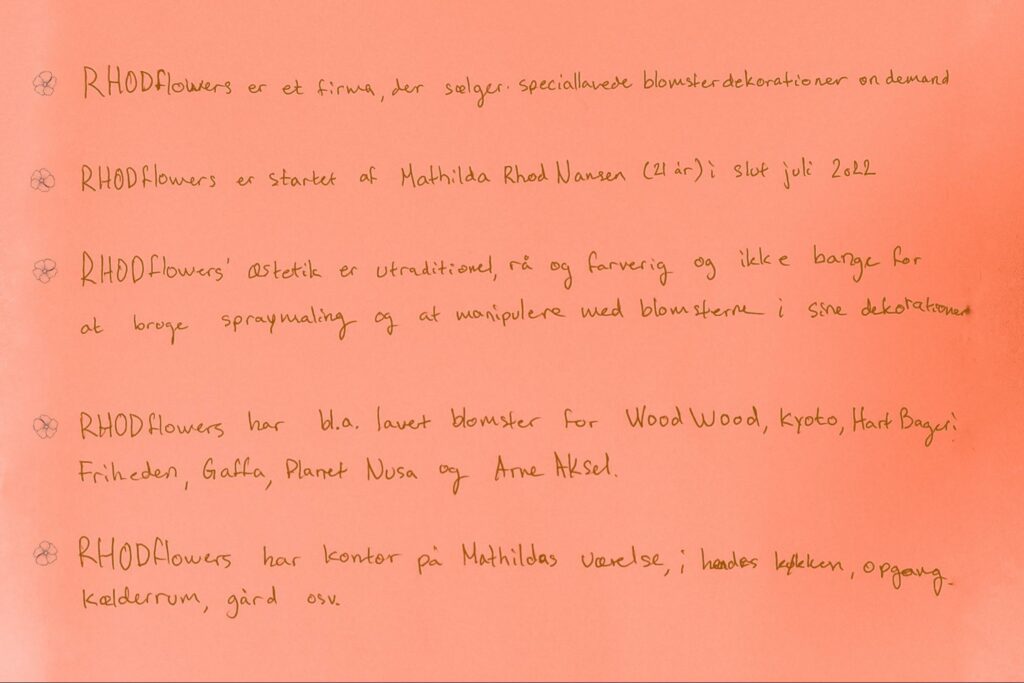 RHODflowers er et firma, der sælger speciallavede blomsterdekorationer on demand
RHODflowers er startet af Mathilda Rhod Nansen (21 år) i slut juli 2022
RHODflowers' æstetik er utraditionel, rå og farverig og ikke bange for
at bruge spraymaling og at manipulere med blomsterne i sine dekorationer
RHODflowers har bl.a. lavet blomster for Wood Wood, Kyoto, Hart Bageri
Friheden, Gaffa, Planet Nusa og Arne Aksel.
RHODflowers har kontor på Mathildas værelse, i hendes køkken, opgang,
kælderrum, gård osv.